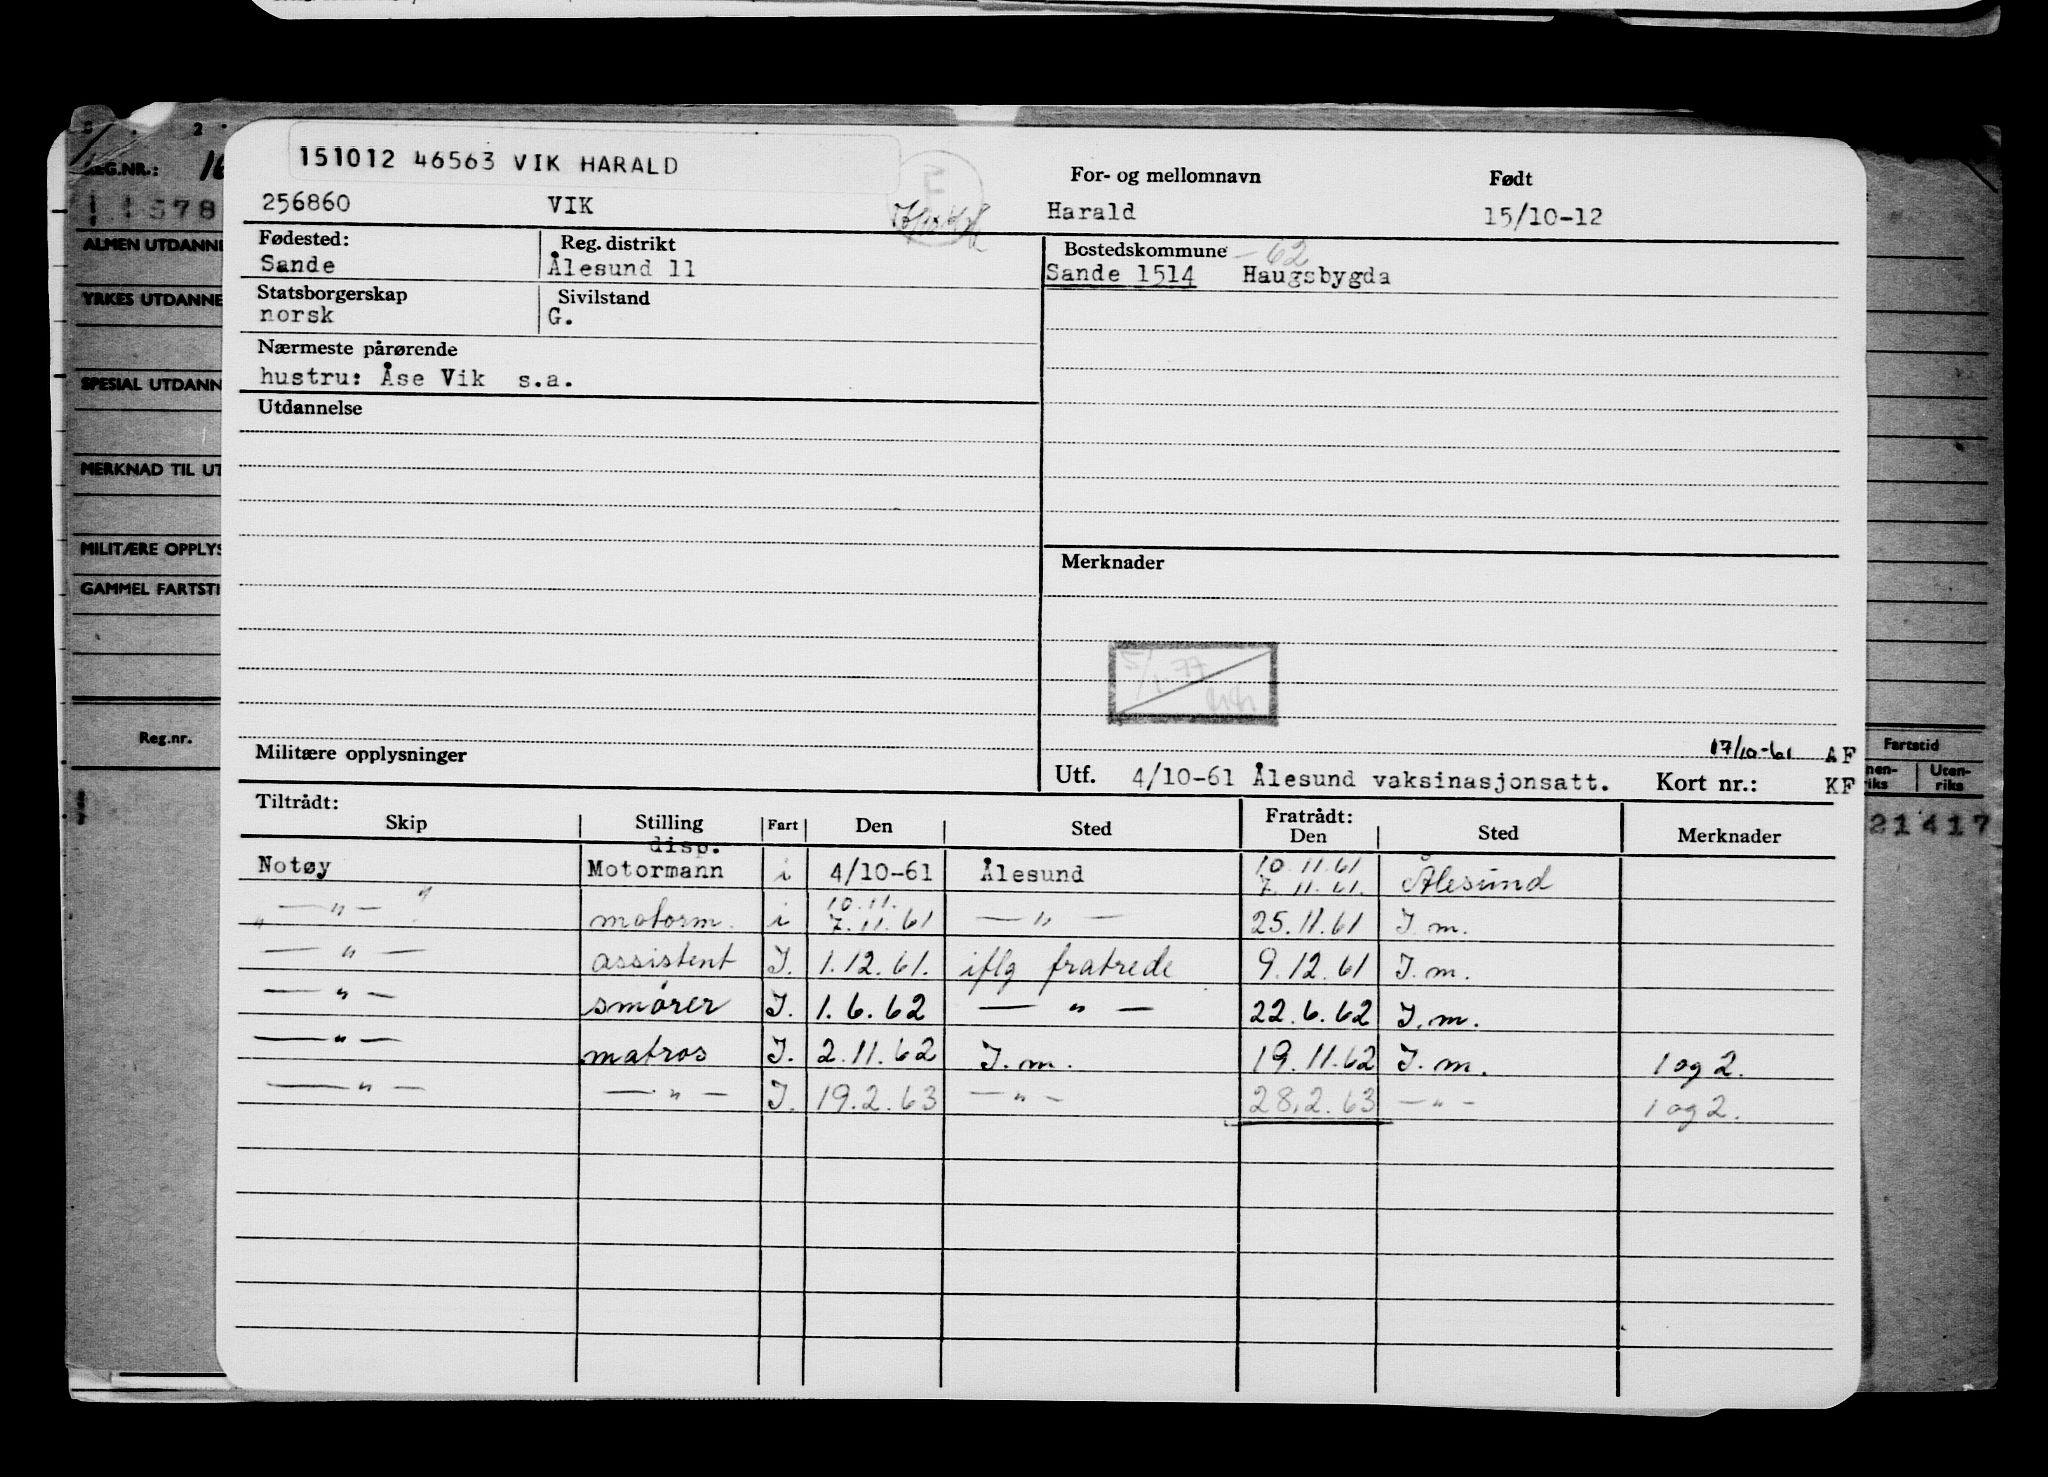 151012 46563 VIK HARALD
For- og mellomnavn Født
256860 VIK Harald 15/10-12
Fødested: Reg. distrikt Bostedskommune -62
Sande Ålesund 11 Sande 1514 Haugsbygda
Statsborgerskap Sivilstand
norsk G.
Nærmeste pårørende
hustru: Åse Vik s.a.
Utdannelse
Merknader
5/1.77
Militære opplysninger
17/10-61 AF
Utf. 4/10-61 Ålesund vaksinasjonsatt. Kort nr.: KF
Tiltrådt: Fratrådt:
Skip Stilling Fart Den Sted Den Sted Merknader
disp.
Notøy Motormann i 4/10-61 Ålesund 10.11.61 7.11.61. Ålesund
— " — motorm. i 10.11. 7.11.61 — " — 25.11.61 I.m.
— " — assistent I. 1.12.61. iflg fratrede 9.12.61 I.m.
— " — smörer I. 1.6.62 — " — 22.6.62 I.m.
— " — matros I. 2.11.62 I.m. 19.11.62 I.m. 1 og 2.
— " — — " — I. 19.2.63 — " — 28.2.63 — " — 1 og 2.
REG.NR.: 16
11578
ALMEN UTDANNE
YRKES UTDANNE
SPESIAL UTDANN
MERKNAD TIL UT
MILITÆRE OPPLYS
GAMMEL FARTSTI
Reg.nr.
Fartstid
nen-riks Uten-riks
21417